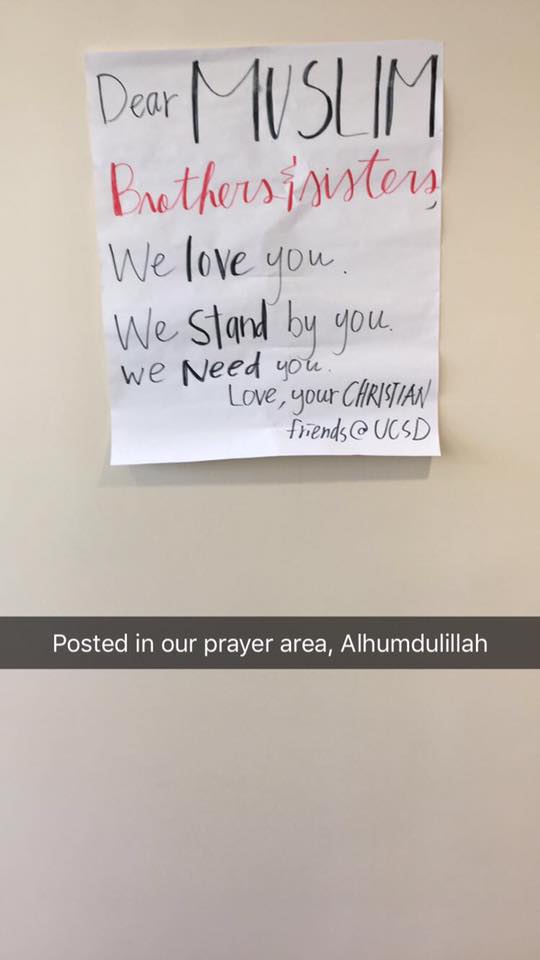 Dear MUSLIM
Brothers & sisters,
We love you.
We Stand by you.
we Need you.
Love, your CHRISTIAN
friends @ UCSD
Posted in our prayer area, Alhumdulillah